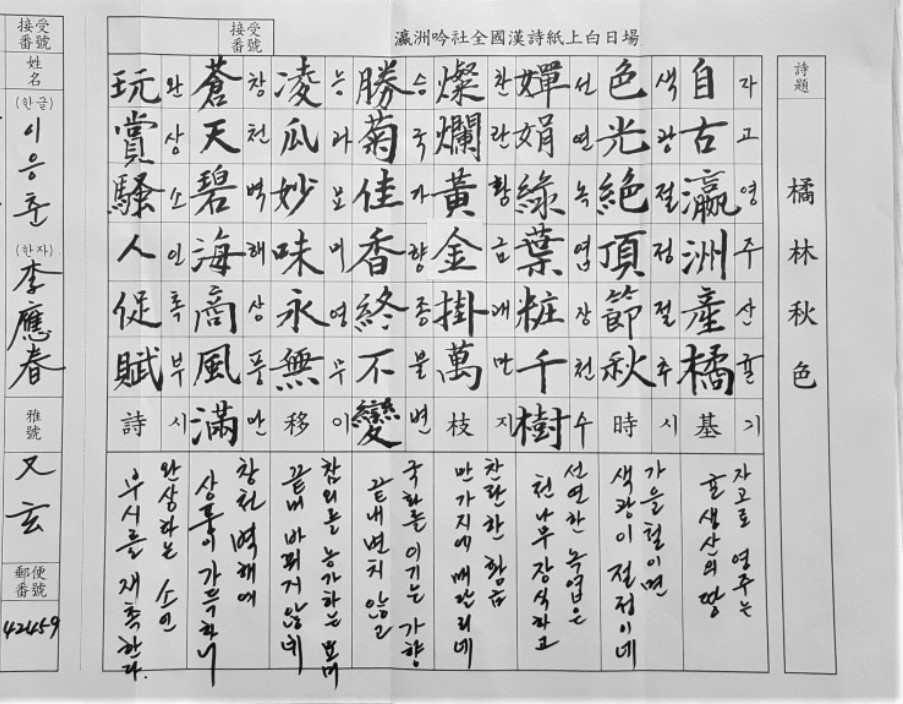 瀛洲吟社全國漢詩紙上白日場
接受番號
詩題
橘林秋色
自古瀛洲產橘基
자고영주산귤기
色光絕頂節秋時
색광절정절추시
嬋娟綠葉粧千樹
선연녹엽장천수
燦爛黃金掛萬枝
찬란황금괘만지
勝菊佳香終不變
승국가향종불변
凌瓜妙味永無移
능과묘미영무이
蒼天碧海商風滿
창천벽해상풍만
玩賞騷人促賦詩
완상소인촉부시
자고로 영주는
귤생산의 땅
가을철이면
색광이 절정이네
선연한 녹엽은
천나무 장식하고
찬란한 황금
만가지에 매달리네
국화를 이기는 가향
끝내 변치 않고
참외를 능가하는 묘미
끝내 바뀌지 않네
창천 벽해에
상풍이 가득하니
완상하는 소인
부시를 재촉한다.
接受番號
姓名
(한글)
이응춘
(한자)
李應春
雅號
又玄
郵便番號
42459